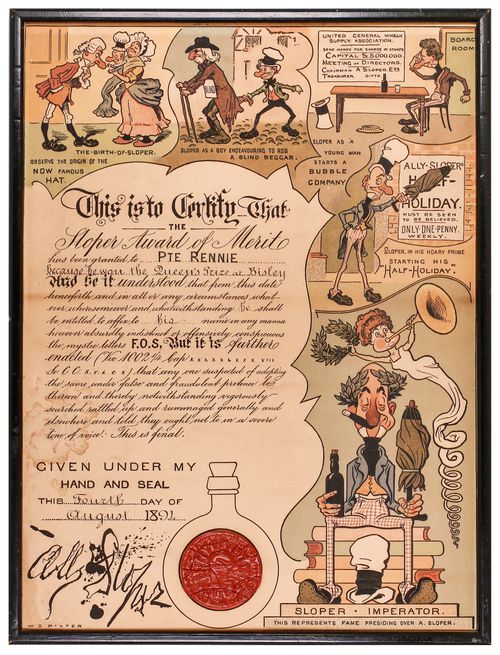 THE·BIRTH·OF·SLOPER.
OBSERVE THE ORIGIN OF THE
NOW FAMOUS
HAT.
SLOPER AS A BOY ENDEAVOURING TO ROB
A BLIND BEGGAR.
UNITED GENERAL WHELK
SUPPLY ASSOCIATION.
SEND MONEY FOR SHARES IN STAMPS
CAPITAL £5,000,000.
MEETING OF DIRECTORS.
CHAIRMAN A SLOPER ESQ
TREASURER DITTO
BOARD
ROOM
SLOPER AS A
YOUNG MAN
STARTS A
BUBBLE
COMPANY
ALLY-SLOPER'S
HALF-
HOLIDAY.
MUST BE SEEN
TO BE BELIEVED.
ONLY ONE PENNY.
WEEKLY.
SLOPER, IN HIS HOARY PRIME
STARTING HIS
"HALF-HOLIDAY".
This is to Certify That
THE
Sloper Award of Merit
has been granted to PTE RENNIE
because he won the Queen's Prize at Bisley
And be it understood that from this date
henceforth and in all or any circumstances what-
ever whensoever and whatwithstanding he shall
be entitled to affix to his name in any manner
however absurdly indistinct or offensively conspicuous
the mystic letters F.O.S. But it is further
enacted (Vic 1002¼ Cap
that any one suspected of adopting
the same under false and fraudulent pretence be
thereon and thereby notwithstanding vigorously
searched rattled up and rummaged generally and
elsewhere and told they ought not to in a severe
tone of voice. This is final.
GIVEN UNDER MY
HAND AND SEAL
THIS Fourth DAY OF
August 1894
Ally Sloper
W. G. BAXTER
SLOPER · IMPERATOR.
THIS REPRESENTS FAME PRESIDING OVER A. SLOPER.